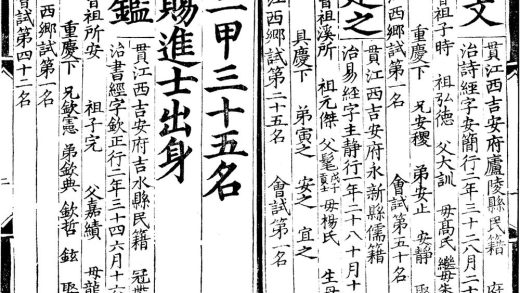 文
貫江西吉安府廬陵縣民籍 府
治詩經字安簡行二年三十二八月二十
曾祖子時 祖弘德 父大訓 母高氏 繼母朱
重慶下 兄安稷 弟安止 安靜 娶
江西鄉試第一名 會試第五十名
定之
貫江西吉安府永新縣儒籍
治易經字主靜行一年二十八十月十
曾祖溪所 祖元傑 父髦 母楊氏 生母
具慶下 弟寅之 安之 宜之
江西鄉試第二十五名 會試第一名
二甲三十五名
賜進士出身
鑑
貫江西吉安府吉水縣民籍 冠帶
治書經字欽正行二年三十四六月十六
曾祖所安 祖子完 父嘉績 母龍
重慶下 兄欽憲 弟欽典 欽哲 鉉 娶
江西鄉試第一名
會試第四十二名